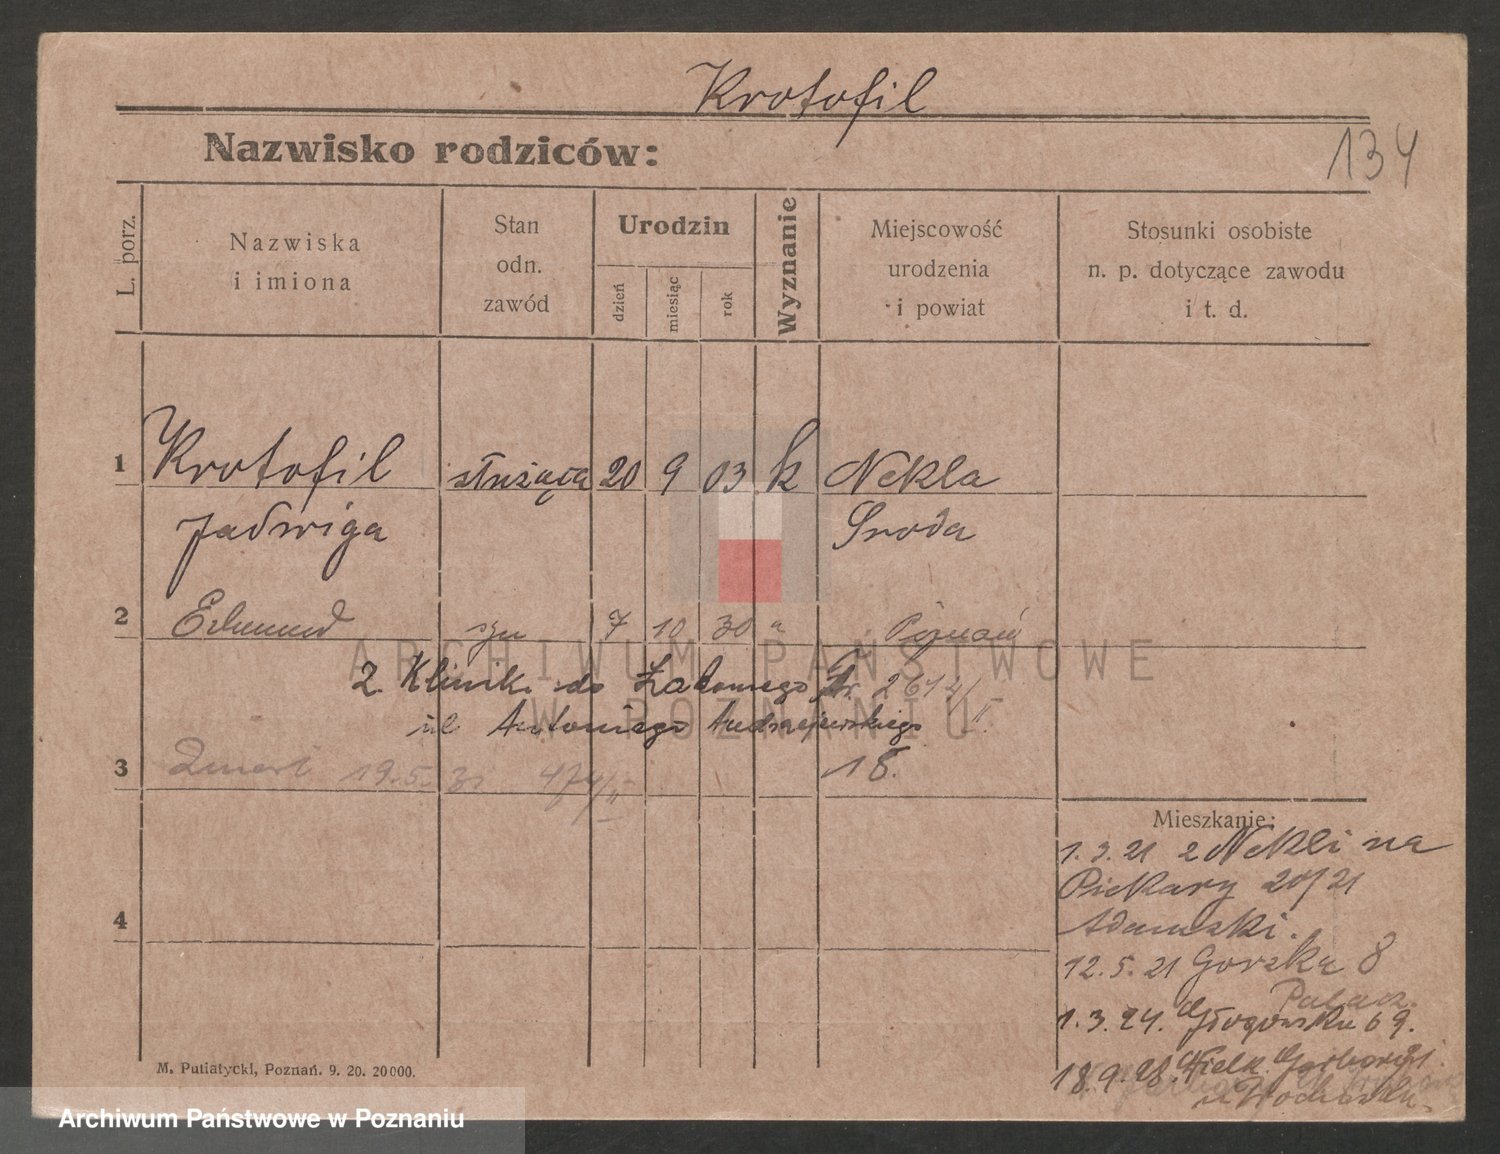 Krotofil
134
Nazwisko rodziców:
L. porz.
Nazwiska
i imiona
Stan
odn.
zawód
Urodzin
dzień
miesiąc
rok
Wyznanie
Miejscowość
urodzenia
i powiat
Stosunki osobiste
n. p. dotyczące zawodu
i t. d.
1 Krotofil służąca 20 9 03 k Nekla
Jadwiga Sroda
2 Edmund syn 7 10 30 " Poznań
ARCHIWUM PAŃSTWOWE
W POZNANIU
Z Kliniki do
ul Antoniego Andrzejewskiego
18.
3 Zmarł 19.5.31 474/II
Mieszkanie:
1.3.21 z Nekli na
Piekary 20/21
Adamski.
12.5.21 Gorska 8
Palacz.
1.3.24. Głogowska 69.
18.9.28. Wielk. Garbary
4
M. Putiatycki, Poznań. 9. 20. 20000.
Archiwum Państwowe w Poznaniu